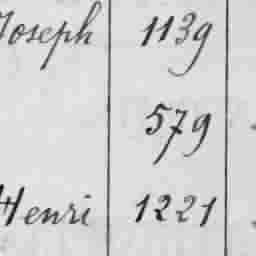 Joseph 1139
579
Henri 1221